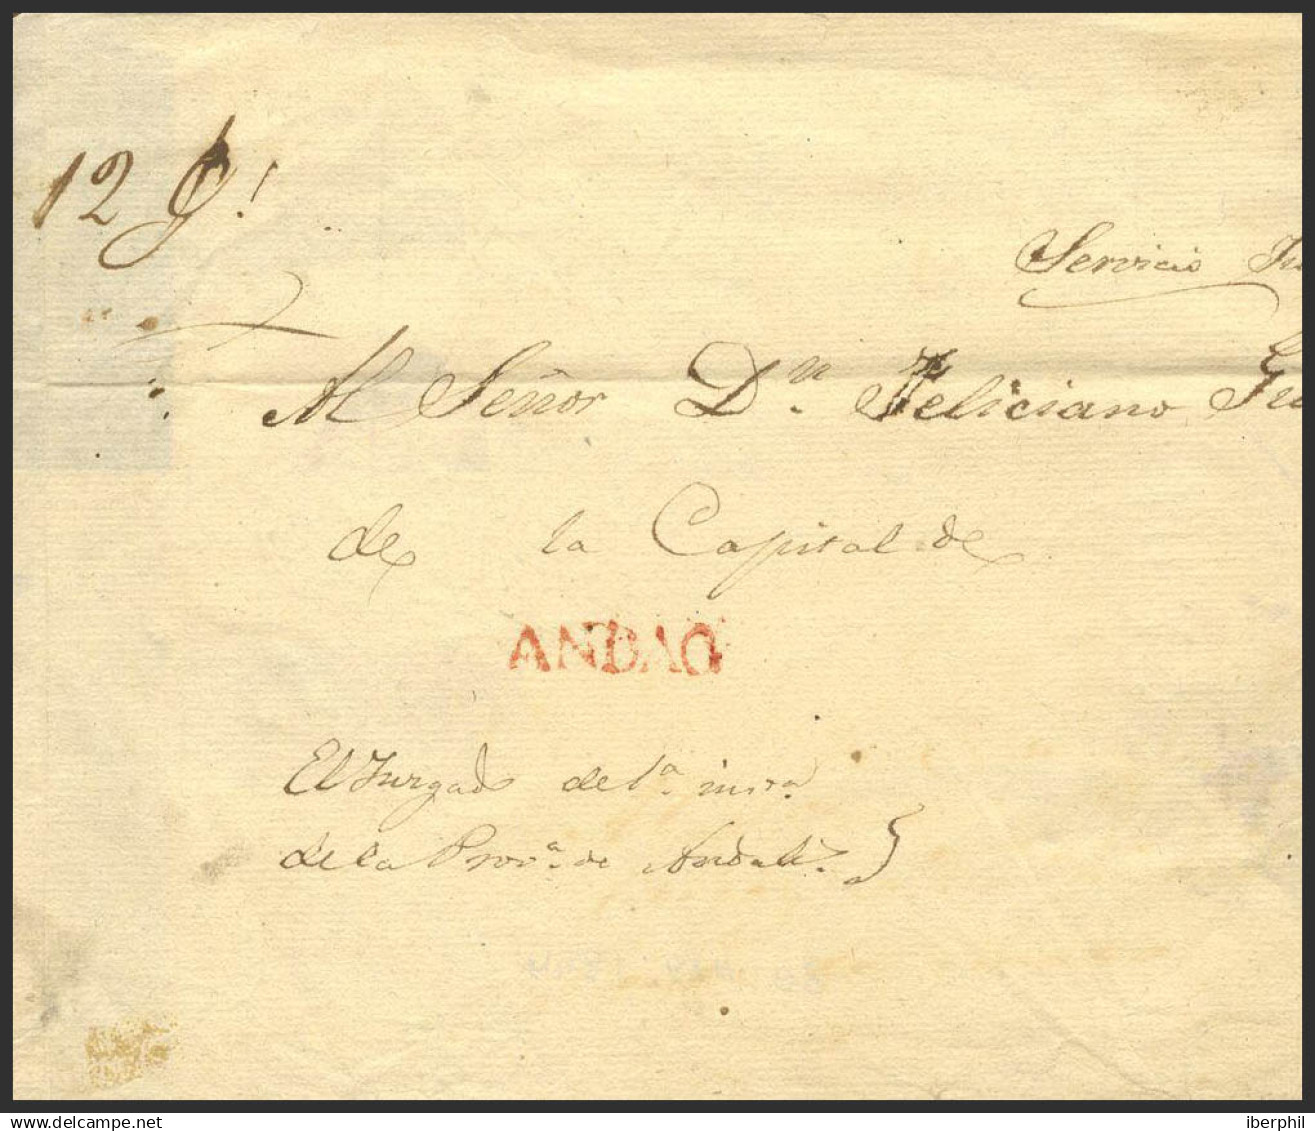 12 
Servicio
Al Señor Dn. Feliciano
de la Capital de
ANDAQ
El Juzgado de 1a. insta.
de la Prova. de Andali.
iberphil